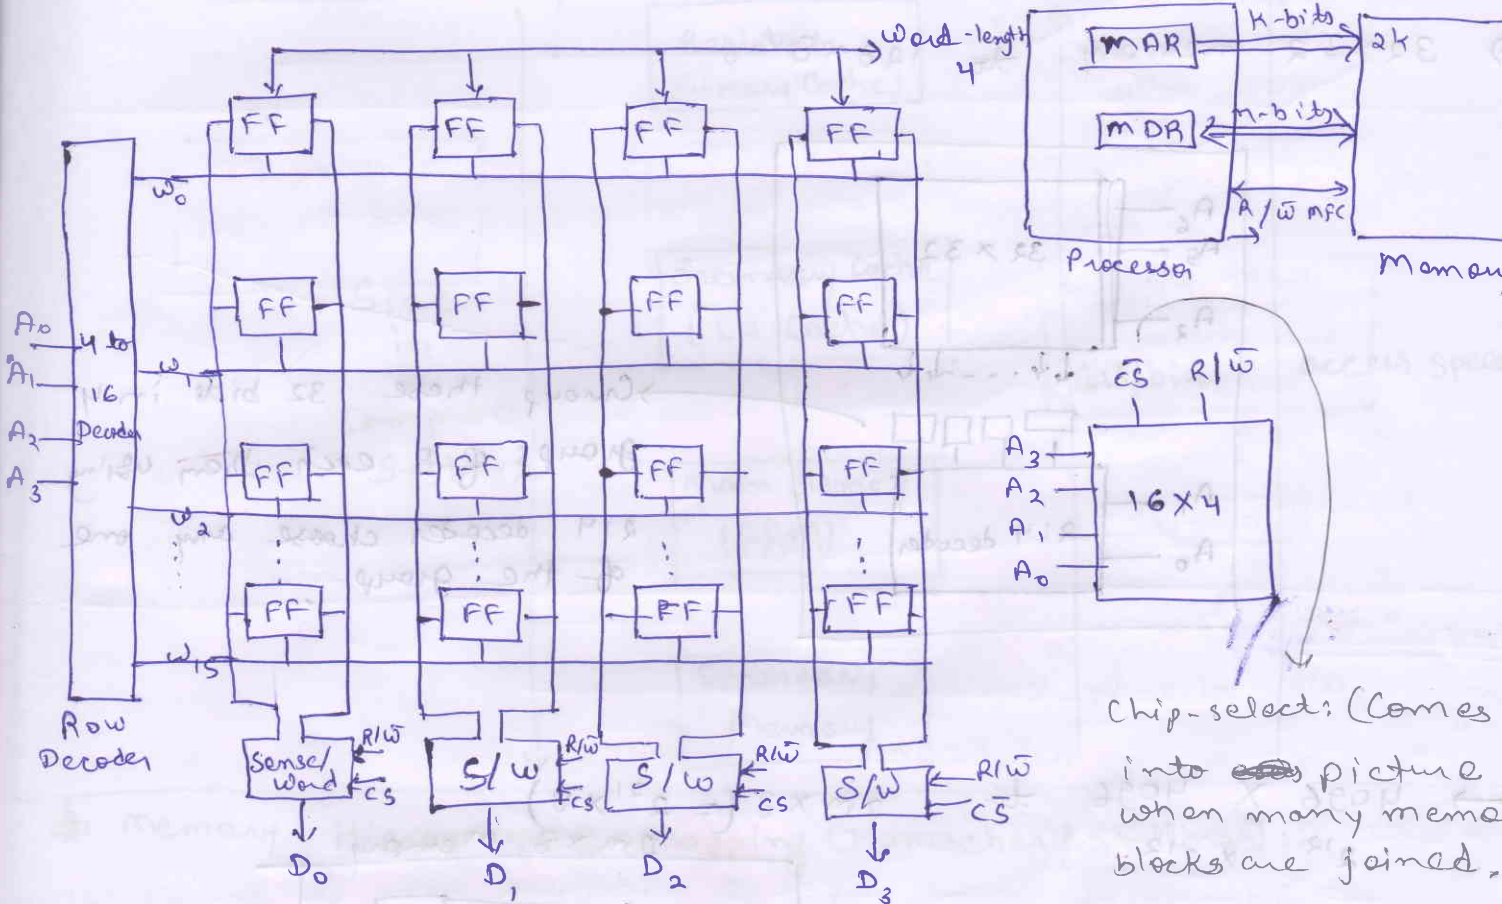 Word-length
4
FF FF FF FF
W0
FF FF FF FF
A0
A1
A2
A3
4 to
16
Decoder
W1
FF FF FF FF
W2
FF FF FF FF
W15
Row
Decoder
Sense/
Word
R/W̅
CS
S/W
R/W̅
CS
S/W
R/W̅
CS
S/W
R/W̅
C̅S̅
D0
D1
D2
D3
MAR
K-bits
2k
MDR
n-bits
R/W̅ MFC
Processor
C̅S̅ R/W̅
A3
A2
A1
A0
16X4
Chip-select: (Comes
into picture
when many
blocks are joined.